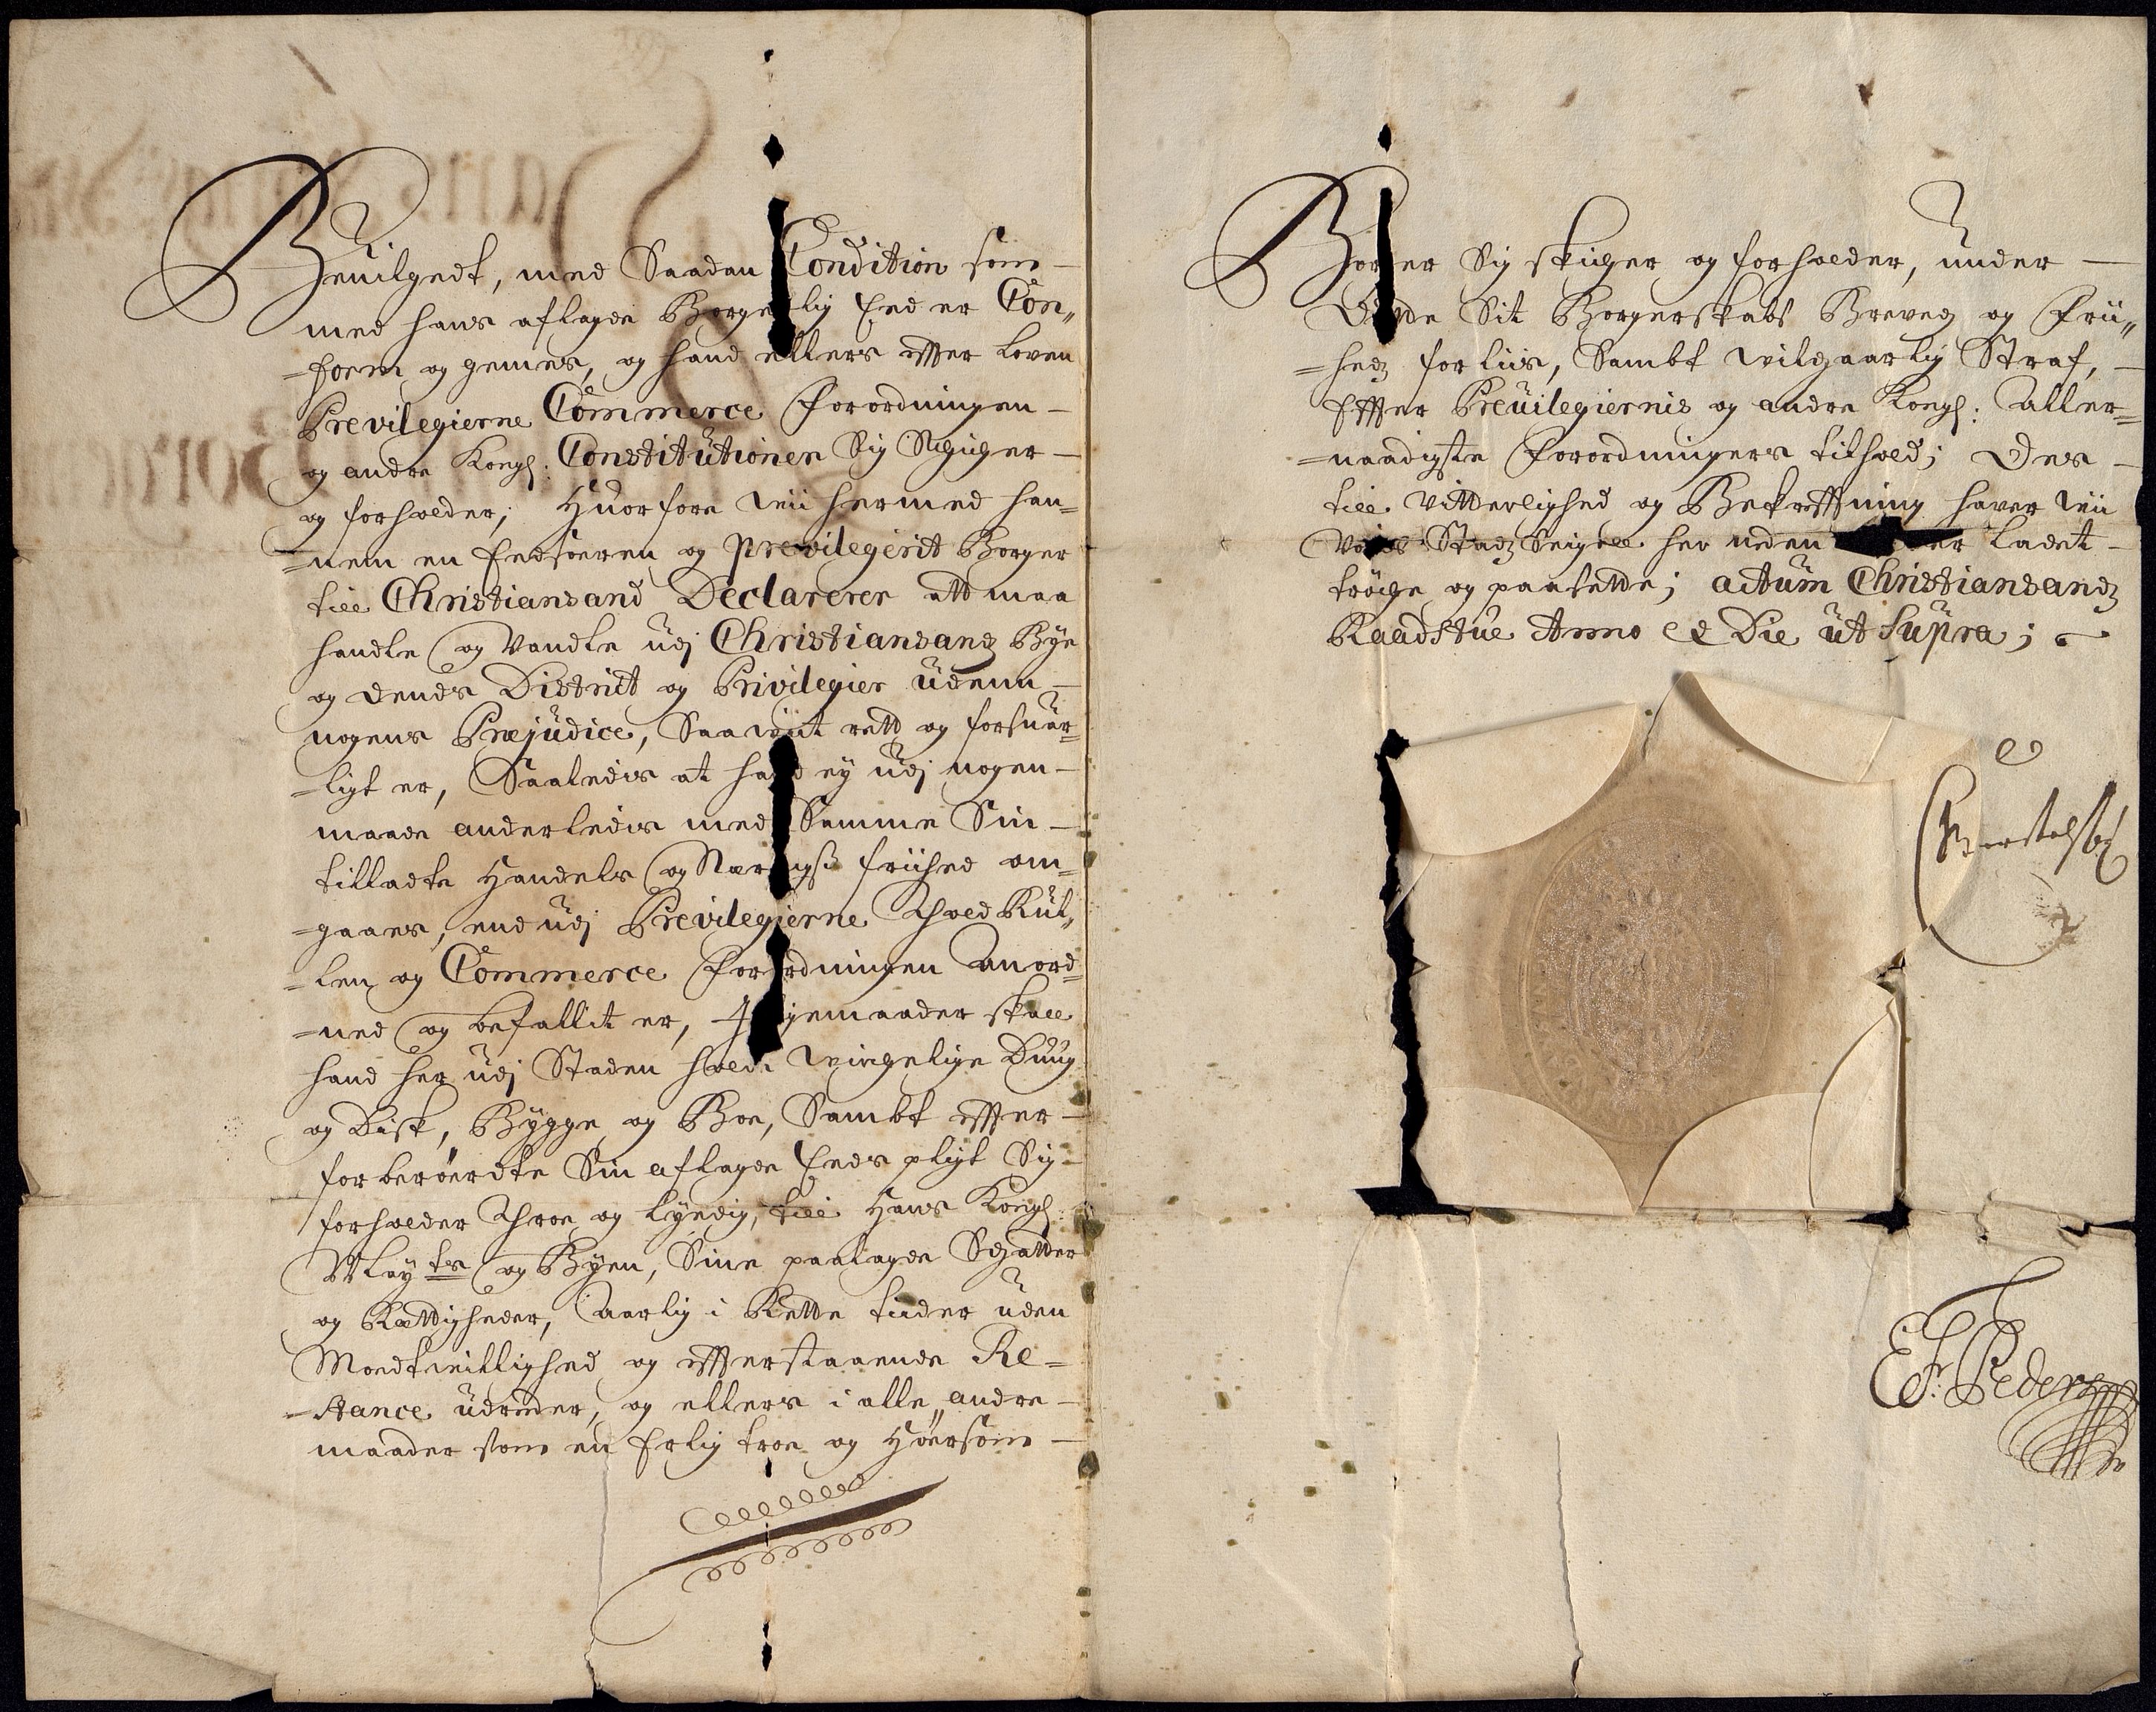 Bevilgedt, med Saadan Condition som
med hans aflagde Borgerlig Eed er Con„
=form og gemes, og hand ellers effter Loven
Previlegierne Commerce Forordningen
og andre Kongl: Constitutioner Sig Schicher
og forholder; Hvorfore wii hermed han=
=nem en Eedsoeren og previlegerit Borger
till Christiansand Declarerer att maa
handle og Vandle udj Christiansandz Bÿe
og dends District og Privilegier uden
nogens Præjudice, Saawiit rett og forsuar=
=ligt er, Saaledis at hand eÿ udj nogen
maade anderledis med Samme Sin
tilladte Handels og Nærings friihed om=
=gaaes, end udj Previlegierne Thold Rul„
=len og Commerce Forordningen anord=
=ned og befallit er, Jligemaader skall
hand her udj Staden holde wirchelige Duug
og Disk, Bygge og Boe, Sambt effter
forberöerdte Sin aflagde Eeds pligt Sig
forholder Throe og Lÿdig, till Hans Kongl:
Maÿts og Bÿen, Sine paalagde Schatter
og Rettigheder, Aarlig i Rette tider uden
Modtwillighed og effterstaaende Re=
=stance udreder, og ellers i alle andre
maader som en Erlig troe og Hörsom
Borger Sig skicher og forholder, under
Dette Sit Borgerskabs Brevez og Frii„
=hedz forliis, Sambt wilchaarlig Straf,
Effter Previlegiernis og andre Kongl: Aller=
=naadigste Forordningers tilhold; Des
till Vitterlighed og Bekrefftning haver wii
Voris Stadz Seigell her neden under ladet
tröche og paasette; actum Christiansandz
Raadstue Anno et Die ut Supra;
E: Peders